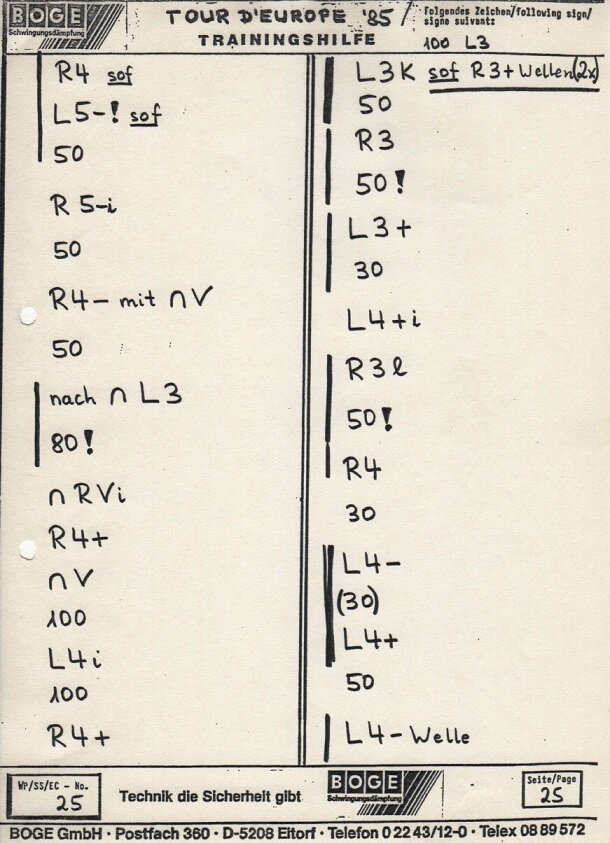 BOGE
Schwingungsdämpfung
TOUR D'EUROPE '85
TRAININGSHILFE
Folgendes Zeichen/following sign/
signe suivant:
100 L3
R4 sof
L5-! sof
50
R 5-i
50
R4- mit ∩ V
50
nach ∩ L3
80!
∩ R V i
R4+
∩ V
100
L4i
100
R4+
L3K sof R3+ Wellen (2x)
50
R3
50!
L3+
30
L4+i
R3l
50!
R4
30
L4-
(30)
L4+
50
L4- Welle
WP/SS/EC - No.
25
Technik die Sicherheit gibt
BOGE
Schwingungsdämpfung
Seite/Page
25
BOGE GmbH · Postfach 360 · D-5208 Eitorf · Telefon 0 22 43/12-0 · Telex 08 89 572